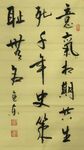 意氣相期共生
死千年史策
恥無名